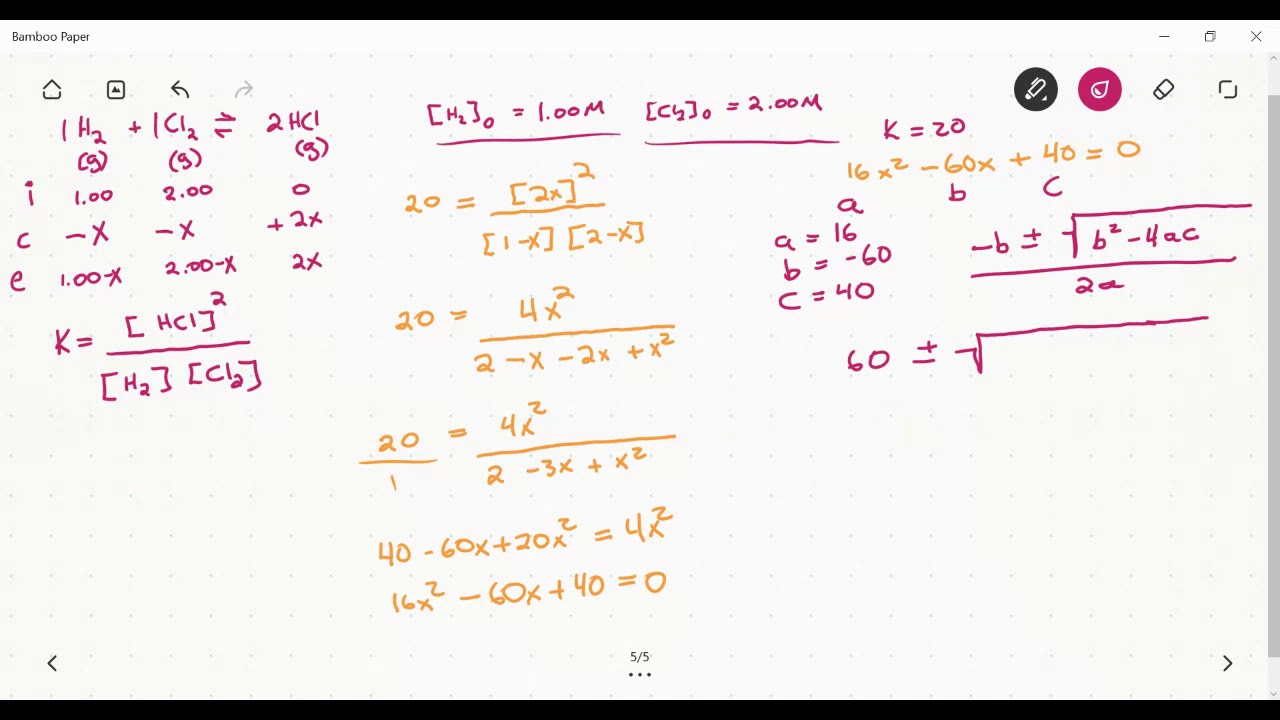 Bamboo Paper
1H₂ + 1Cl₂ ⇌ 2HCl
(g) (g) (g)
i 1.00 2.00 0
c -x -x +2x
e 1.00-x 2.00-x 2x
K = [HCl]² / [H₂] [Cl₂]
[H₂]₀ = 1.00M [Cl₂]₀ = 2.00M
20 = [2x]² / [1-x] [2-x]
20 = 4x² / 2 - x - 2x + x²
20/1 = 4x² / 2 - 3x + x²
40 - 60x + 20x² = 4x²
16x² - 60x + 40 = 0
K = 20
16x² - 60x + 40 = 0
a b c
a = 16
b = -60
c = 40
-b ± √b² - 4ac / 2a
60 ± √
5/5